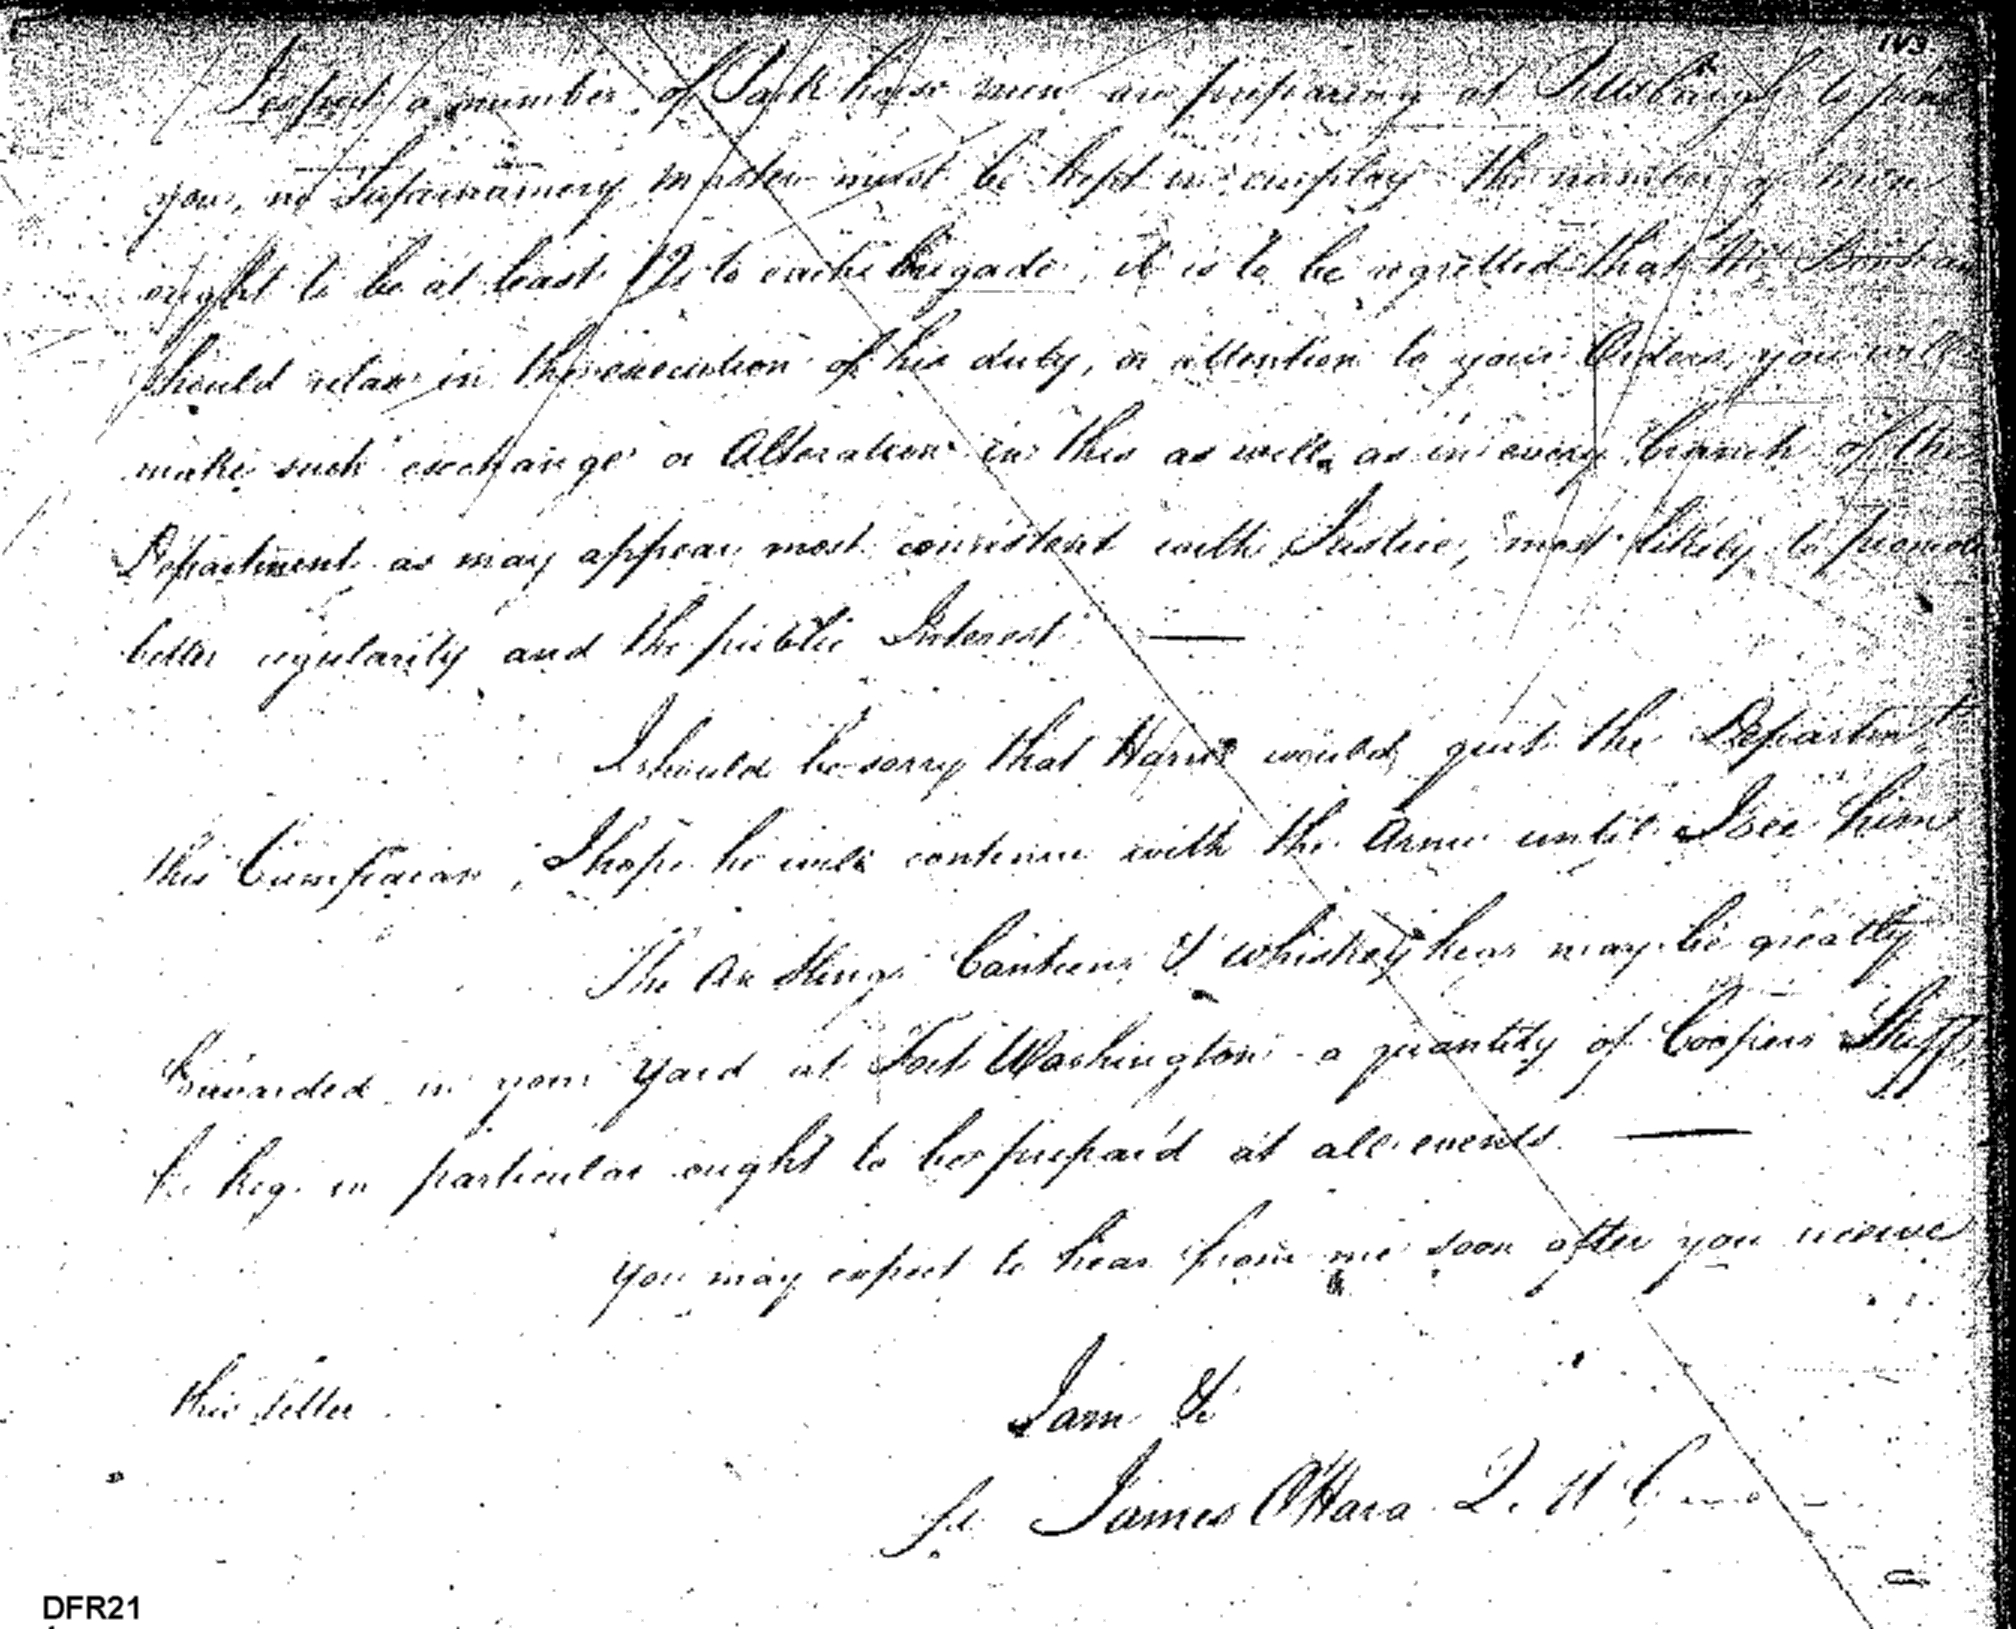 I expect a number of Pack horse men are preparing at Pittsburgh to join
you, no Supernumery Master must be kept in employ the number of men
ought to be at least 12 to each brigade, it is to be regretted that Mr
should relax in the execution of his duty, or attention to your Orders, you will
make such exchange or Alteration in this as well as in every branch of the
Department as may appear most consistent with Justice, most likely to promote
better regularity and the public Interest —
I should be sorry that would quit the Departmt
this Campaign, I hope he will continue with the Army until I see him
The Ax Slings Canteens & whiskey kegs may be greatly
forwarded in your Yard at Fort Washington a quantity of Coopers Stuff
for keg in particular ought to be prepar'd at all events —
You may expect to hear from me soon after you receive
this letter
I am &c
James O'Hara Q. M
DFR21